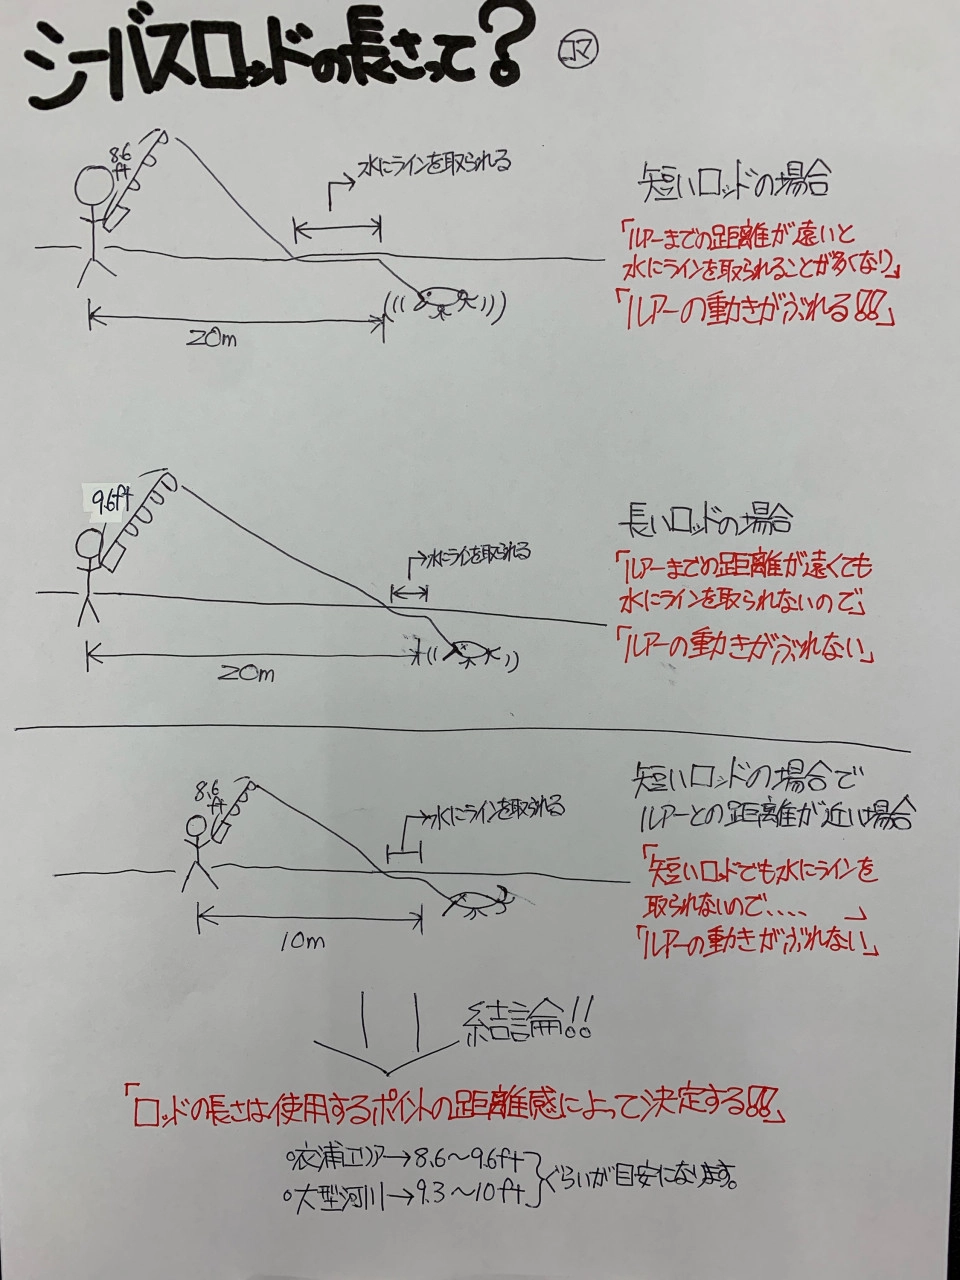 シーバスロッドの長さって?
コマ
8.6
ft
水にラインを取られる
短いロッドの場合
「ルアーまでの距離が遠いと
水にラインを取られることが多くなり」
「ルアーの動きがぶれる!!」
20m
9.6ft
長いロッドの場合
水にラインを取られる
「ルアーまでの距離が遠くても
水にラインを取られないので」
「ルアーの動きがぶれない」
20m
短いロッドの場合で
ルアーとの距離が近い場合
8.6
ft
水にラインを取られる
「短いロッドでも水にラインを
取られないので、、、、 」
「ルアーの動きがぶれない」
10m
結論!!
「ロッドの長さは使用するポイントの距離感によって決定する!!」
○衣浦エリア→8.6〜9.6ft
○大型河川→9.3〜10ft
ぐらいが目安になります。